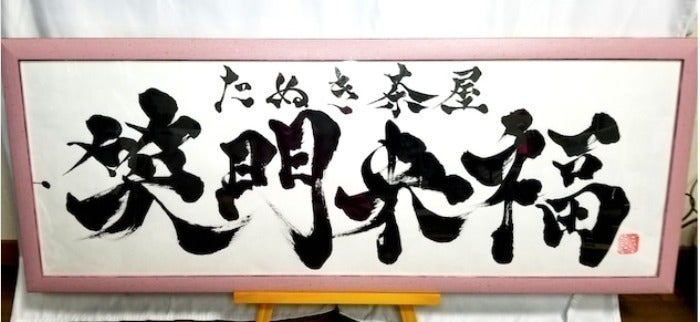 たぬき茶屋
笑門来福